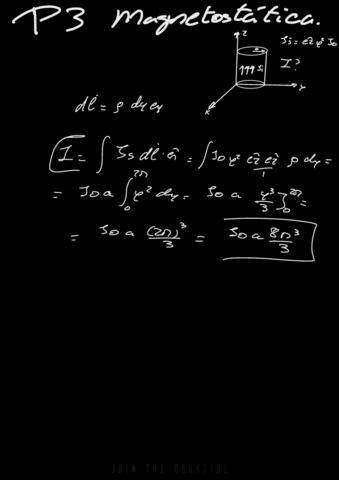 P3 Magnetostática.
z
Js = êz φ² J0
↑↑↑ Js
I?
x
y
dl = ρ dφ eφ
I = ∫ Js dl · ñ = ∫ J0 φ² êz êz ρ dφ =
1
= J0 a ∫₀^2π φ² dφ = J0 a φ³/3 ]₀^2π =
= J0 a (2π)³/3 = J0 a 8π³/3
JOIN THE DARKSIDE